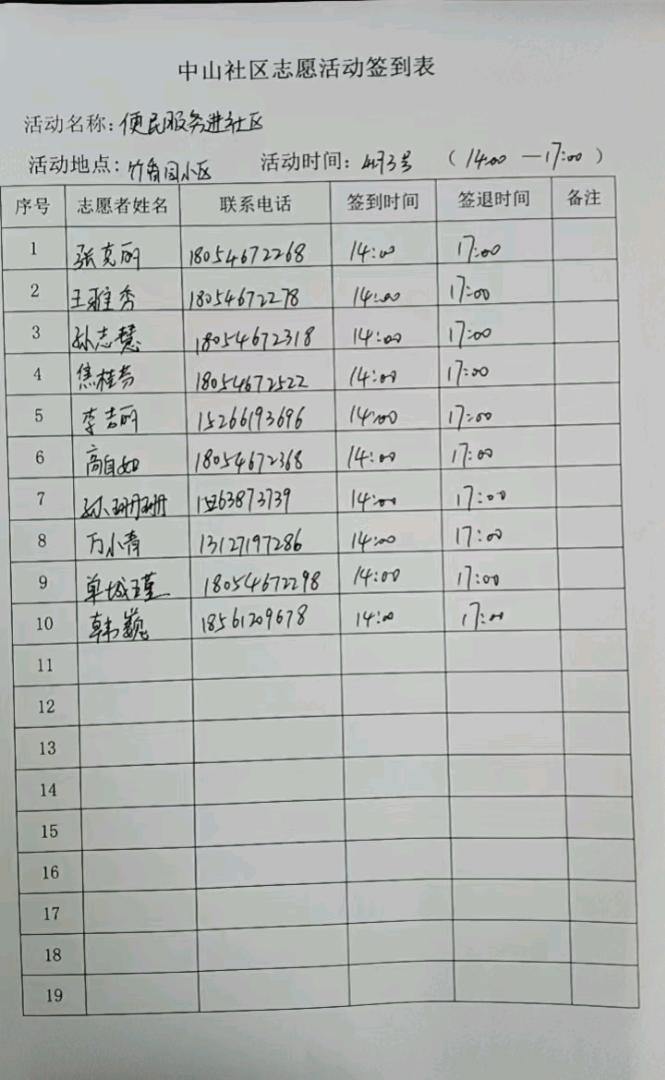 中山社区志愿活动签到表
活动名称：便民服务进社区
活动地点：竹香园小区 活动时间：4月3号 （14:00 —17:00）
序号 志愿者姓名 联系电话 签到时间 签退时间 备注
1 张克丽 18054672268 14:00 17:00
2 王雅秀 18054672278 14:00 17:00
3 孙志慧 18054672318 14:00 17:00
4 焦桂芬 18054672522 14:00 17:00
5 李吉丽 15266193696 14:00 17:00
6 高自如 18054672368 14:00 17:00
7 孙珊珊 14:00 17:00
8 万小青 13127197286 14:00 17:00
9 单城瑾 18054672298 14:00 17:00
10 韩巍 18561209678 14:00 17:00
11
12
13
14
15
16
17
18
19